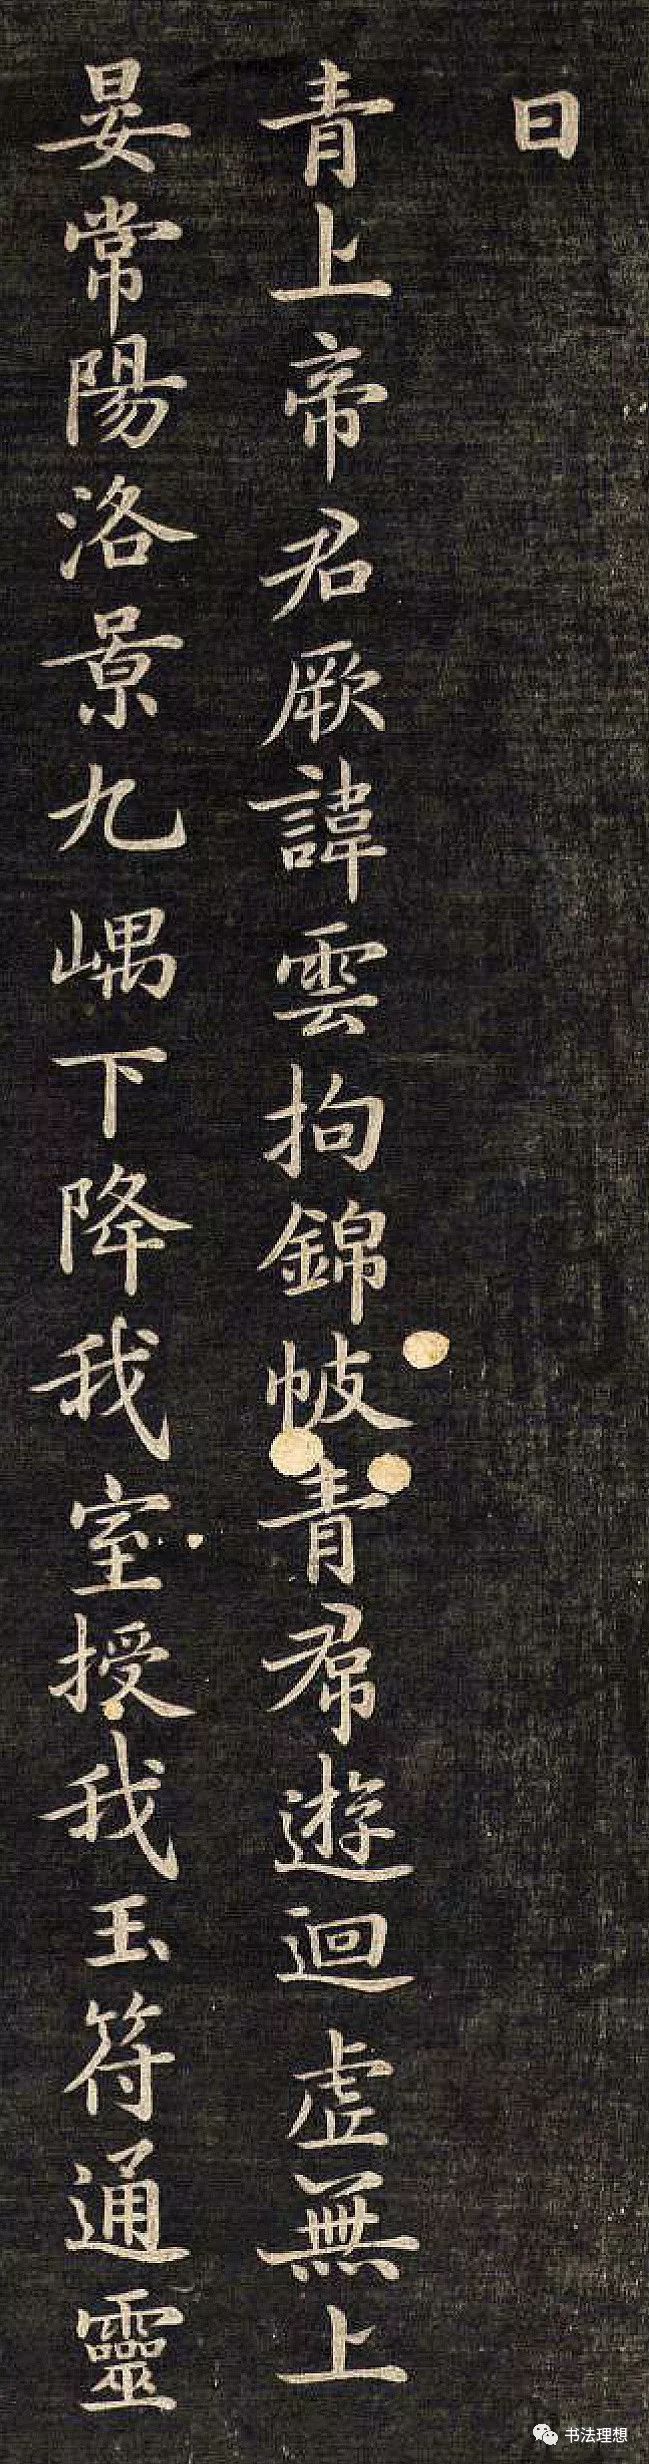 曰
青上帝君厥諱雲拘錦帔青帬遊迴虛無上
晏常陽洛景九嵎下降我室授我玉符通靈
书法理想